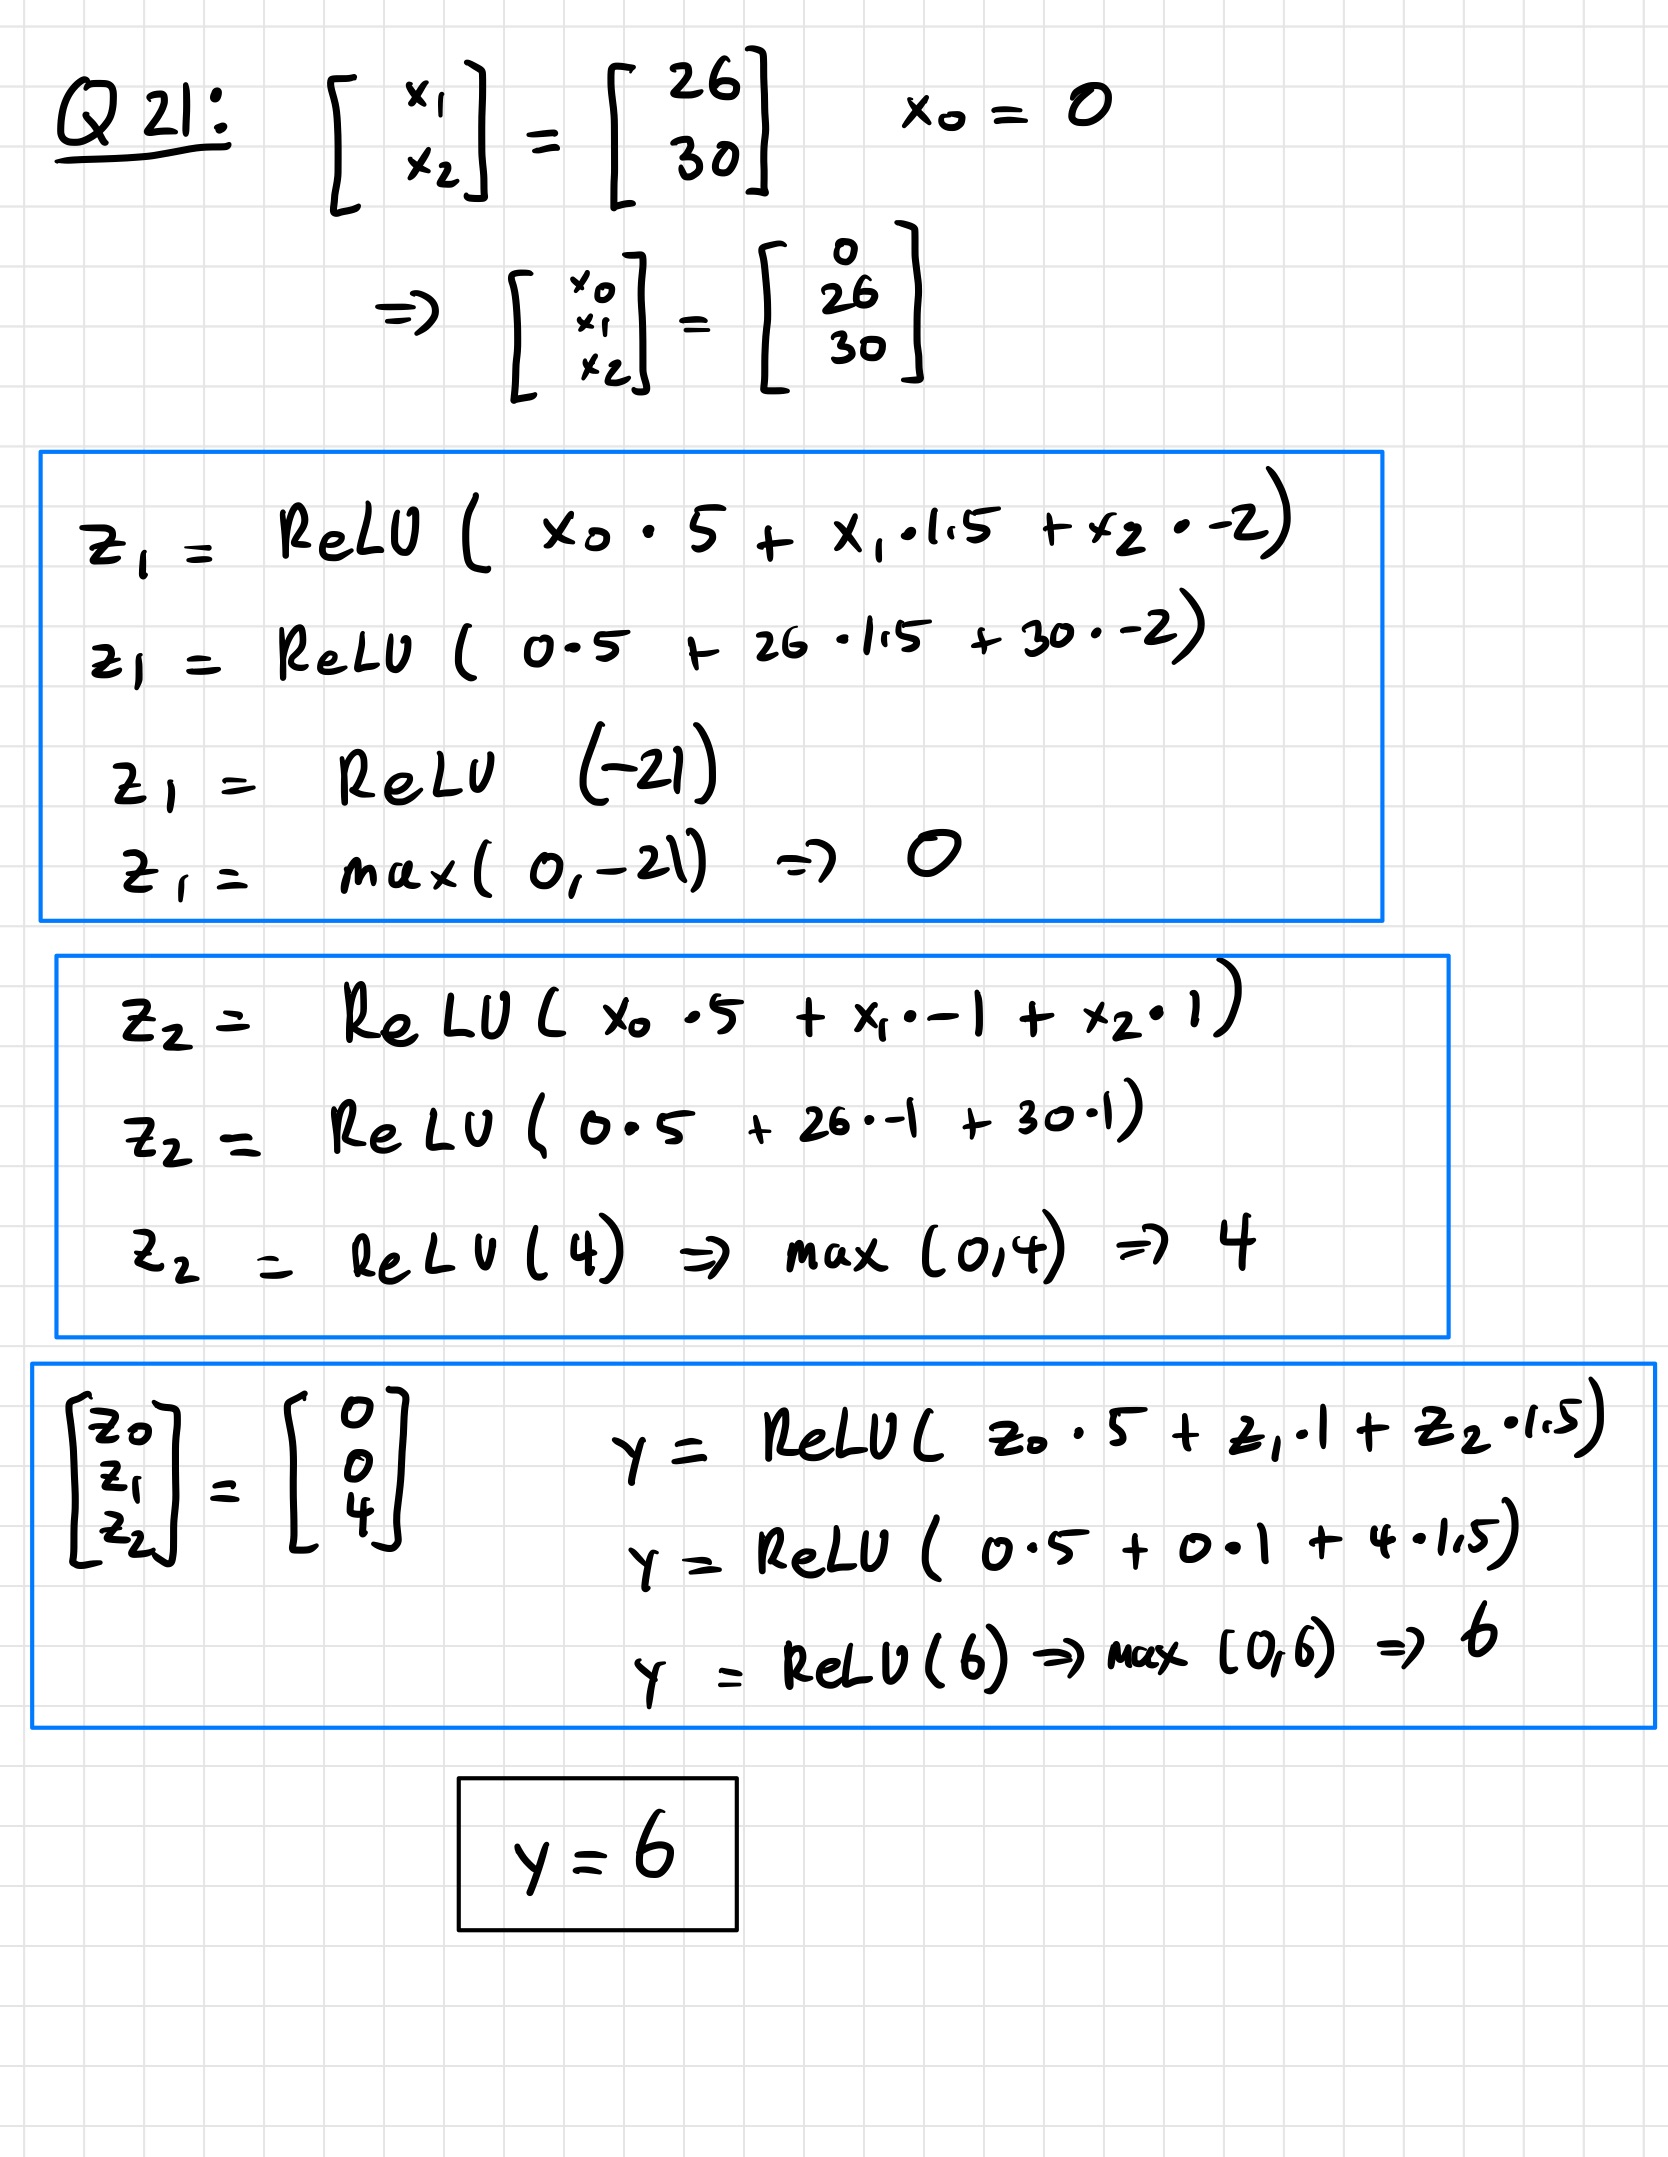 Q 21: [x₁ x₂] = [26 30] x₀ = 0
⇒ [x₀ x₁ x₂] = [0 26 30]
z₁ = ReLU ( x₀ · 5 + x₁ · 1.5 + x₂ · -2)
z₁ = ReLU ( 0 · 5 + 26 · 1.5 + 30 · -2)
z₁ = ReLU (-21)
z₁ = max( 0, -21) ⇒ 0
z₂ = ReLU ( x₀ · 5 + x₁ · -1 + x₂ · 1)
z₂ = ReLU ( 0 · 5 + 26 · -1 + 30 · 1)
z₂ = ReLU (4) ⇒ max (0,4) ⇒ 4
[z₀ z₁ z₂] = [0 0 4]
y = ReLU( z₀ · 5 + z₁ · 1 + z₂ · 1.5)
y = ReLU ( 0 · 5 + 0 · 1 + 4 · 1.5)
y = ReLU (6) ⇒ max (0,6) ⇒ 6
y = 6